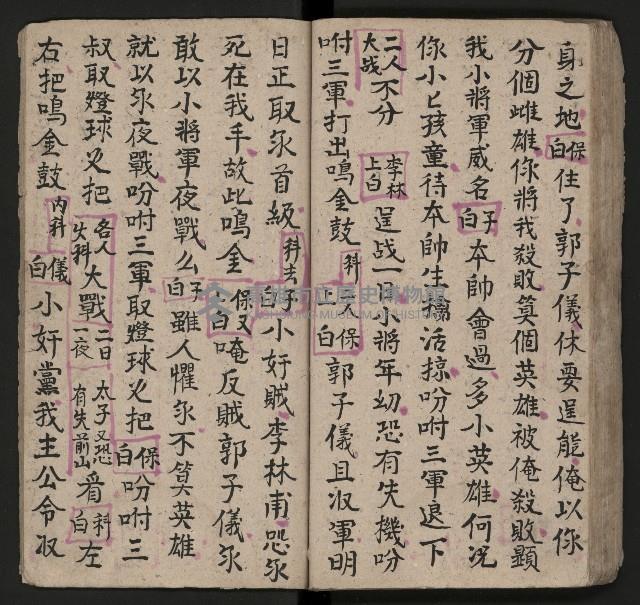 身之地保白住了郭子儀休要逞能俺以你
分個雌雄你將我殺敗算個英雄被俺殺敗顯
我小將軍威名子白本帥會過多小英雄何況
你小匕孩童待本帥生擒活掠吩咐三軍退下
二人大战不分李林上白逞战一日小將年幼恐有失機吩
咐三軍打出鳴金鼓科保白郭子儀且收軍明
日正取尔首級科去子白小奸賊李林甫恐尔
死在我手故此鳴金保又白唵反賊郭子儀尔
敢以小將軍夜戰么子白雖人懼尔不算英雄
就以尔夜戰吩咐三軍取燈球火把保白吩咐三
叔取燈球火把各人火科大戰二日一夜太子又恐有失前山看科白左
右把鳴金鼓内科儀白小奸黨我主公令收
高雄市立歷史博物館
KAOHSIUNG MUSEUM OF HISTORY